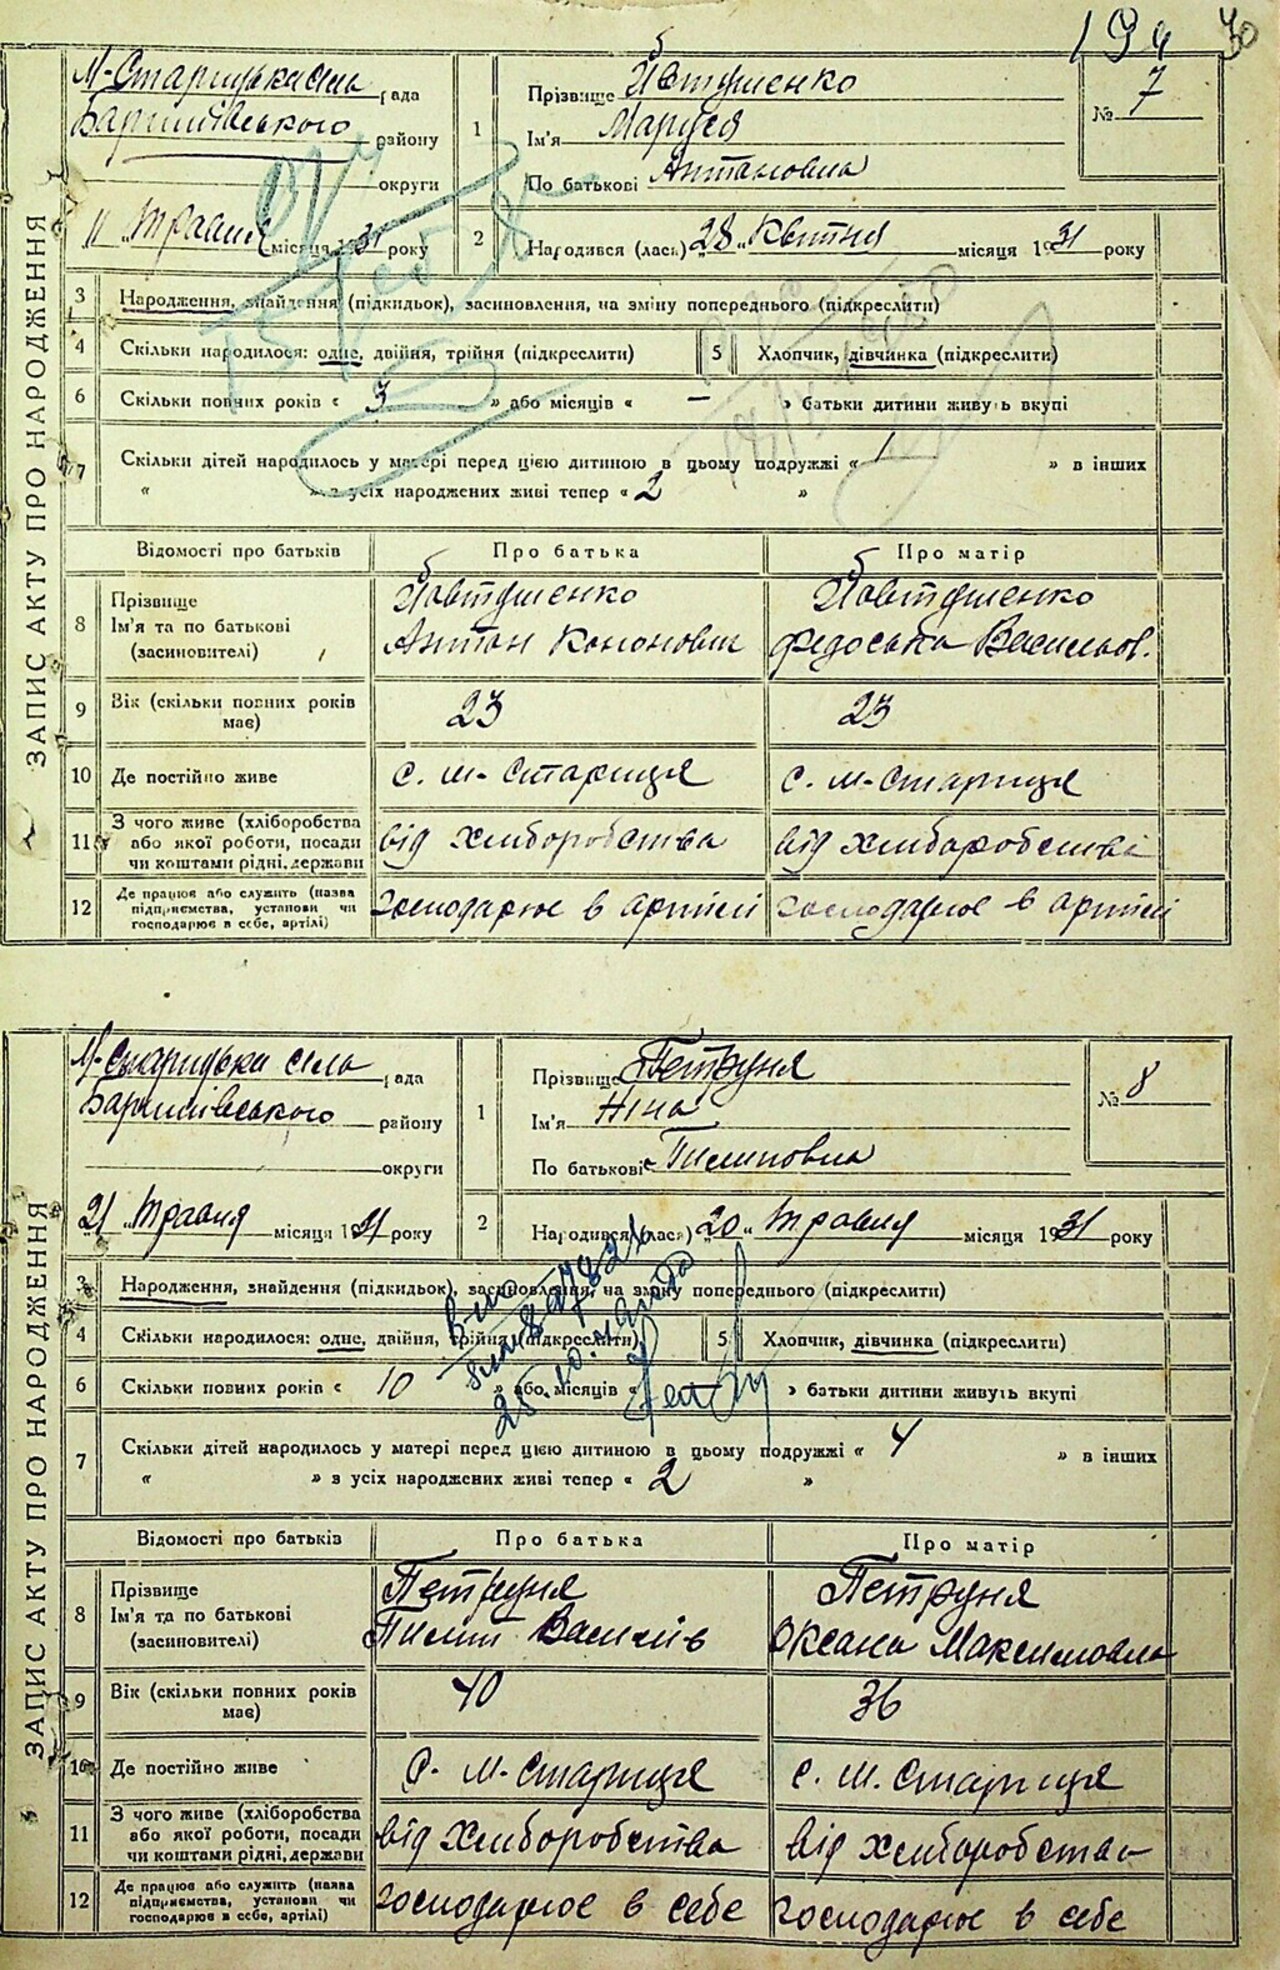 30
ЗАПИС АКТУ ПРО НАРОДЖЕННЯ
М-Старицька сіль рада
Баришівського району
округи
11 " травня місяця 1931 року
1
Прізвище Йовтушенко
Ім'я Маруся
По батькові Антоновна
№ 7
2
Народився (лась) "28" квітня місяця 1931 року
3 Народження, знайдення (підкидьок), засиновлення, на зміну попереднього (підкреслити)
4 Скільки народилося: одне, двійня, трійня (підкреслити) 5 Хлопчик, дівчинка (підкреслити)
6 Скільки повних років « 3 » або місяців « — » батьки дитини живуть вкупі
7 Скільки дітей народилось у матері перед цією дитиною в цьому подружжі « 1 » в інших
« » з усіх народжених живі тепер « 2 »
Відомості про батьків Про батька Про матір
8 Прізвище Ім'я та по батькові (засиновителі)
Йовтушенко Антон Кононович
Йовтушенко Федоська Васильов.
9 Вік (скільки повних років має) 23 23
10 Де постійно живе с. М-Стариця с. М-Стариця
11 З чого живе (хліборобства або якої роботи, посади чи коштами рідні, держави від хліборобства від хліборобства
12 Де працює або служить (назва підприємства, установи чи господарює в себе, артілі) господарює в артілі господарює в артілі
ЗАПИС АКТУ ПРО НАРОДЖЕННЯ
М-Старицька сіль рада
Баришівського району
округи
21 " травня місяця 1931 року
1
Прізвище Петруня
Ім'я Ніна
По батькові Пилиповна
№ 8
2
Народився (лась) "20" травня місяця 1931 року
3 Народження, знайдення (підкидьок), засиновлення, на зміну попереднього (підкреслити)
4 Скільки народилося: одне, двійня, трійня (підкреслити) 5 Хлопчик, дівчинка (підкреслити)
6 Скільки повних років « 10 » або місяців « — » батьки дитини живуть вкупі
7 Скільки дітей народилось у матері перед цією дитиною в цьому подружжі « 4 » в інших
« » з усіх народжених живі тепер « 2 »
Відомості про батьків Про батька Про матір
8 Прізвище Ім'я та по батькові (засиновителі)
Петруня Пилип Василів
Петруня Оксана Максимовна
9 Вік (скільки повних років має) 40 36
10 Де постійно живе с. М-Стариця с. М. Стариця
11 З чого живе (хліборобства або якої роботи, посади чи коштами рідні, держави від хліборобства від хліборобства
12 Де працює або служить (назва підприємства, установи чи господарює в себе, артілі) господарює в себе господарює в себе